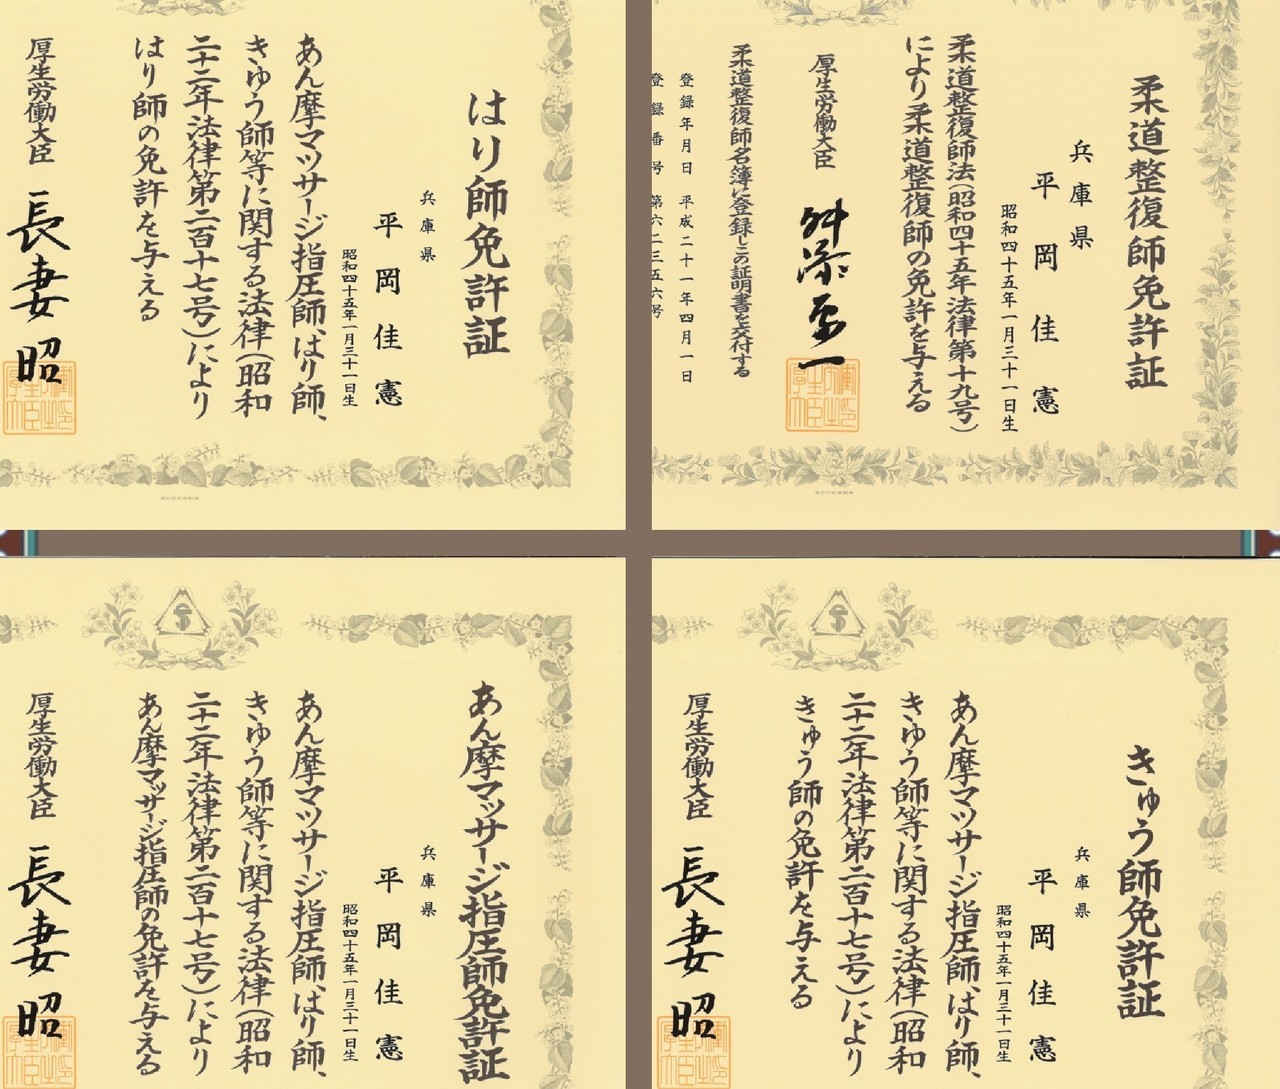 はり師免許証
兵庫県
平岡佳憲
昭和四十五年一月三十一日生
あん摩マツサージ指圧師、はり師、
きゆう師等に関する法律(昭和
二十二年法律第二百十七号)により
はり師の免許を与える
厚生労働大臣
長妻昭
柔道整復師免許証
兵庫県
平岡佳憲
昭和四十五年一月三十一日生
柔道整復師法(昭和四十五年法律第十九号)
により柔道整復師の免許を与える
厚生労働大臣
舛添要一
柔道整復師名簿に登録しこの証明書を交付する
登録年月日 平成二十一年四月一日
登録番号 第六二三五六号
あん摩マッサージ指圧師免許証
兵庫県
平岡佳憲
昭和四十五年一月三十一日生
あん摩マツサージ指圧師、はり師、
きゆう師等に関する法律(昭和
二十二年法律第二百十七号)により
あん摩マッサージ指圧師の免許を与える
厚生労働大臣
長妻昭
きゅう師免許証
兵庫県
平岡佳憲
昭和四十五年一月三十一日生
あん摩マツサージ指圧師、はり師、
きゆう師等に関する法律(昭和
二十二年法律第二百十七号)により
きゅう師の免許を与える
厚生労働大臣
長妻昭